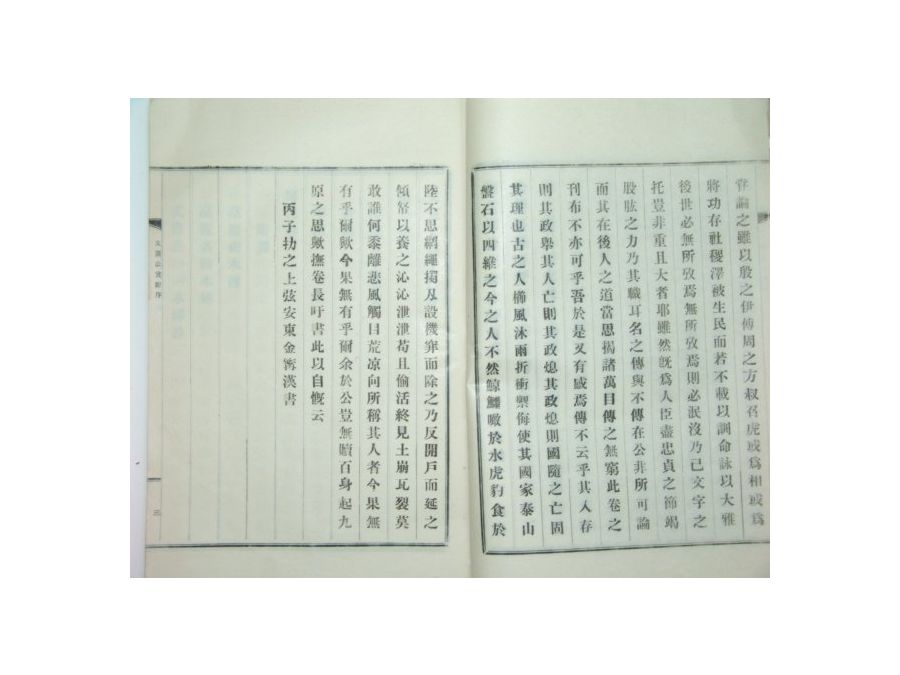 嘗論之雖以殷之伊傅周之方叔召虎或爲相或爲
將功存社稷澤被生民而若不載以訓命詠以大雅
後世必無所攷焉無所攷焉則必泯沒乃已文字之
托豈非重且大者耶雖然旣爲人臣盡忠貞之節竭
股肱之力乃其職耳名之傳與不傳在公非所可論
而其在後人之道當思揭諸萬目傳之無窮此卷之
刊布不亦可乎吾於是又有感焉傳不云乎其人存
則其政舉其人亡則其政熄其政熄則國隨之亡固
其理也古之人櫛風沐雨折衝禦侮使其國家泰山
盤石以四維之今之人不然鯨鱷噉於水虎豹食於
陸不思網繩搗及設機穽而除之乃反開戶而延之
傾帑以養之沁沁泄泄苟且偷活終見土崩瓦裂莫
敢誰何黍離悲風觸目荒凉向所稱其人者今果無
有乎爾歟今果無有乎爾余於公豈無贖百身起九
原之思歟撫卷長吁書此以自慨云
丙子抐之上弦安東金寗漢書
三